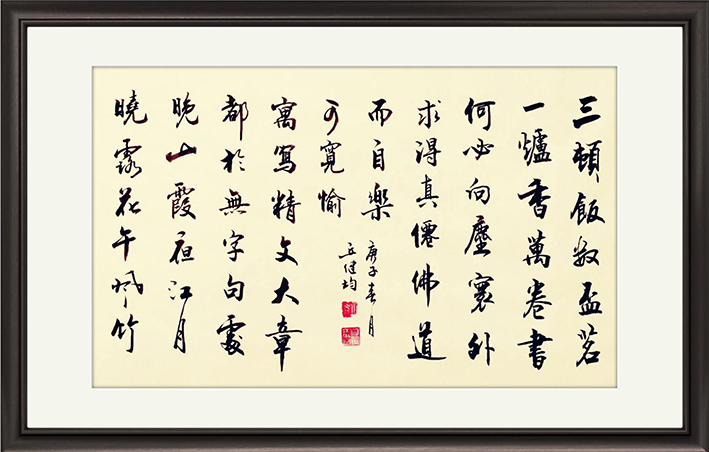 三頓飯數盃茗
一爐香萬卷書
何必向塵寰外
求得真僊佛道
而自樂
曉露花午風竹
晚山霞夜江月
都於無字句處
寓寫精文大章
可寬愉
庚子春月
健均